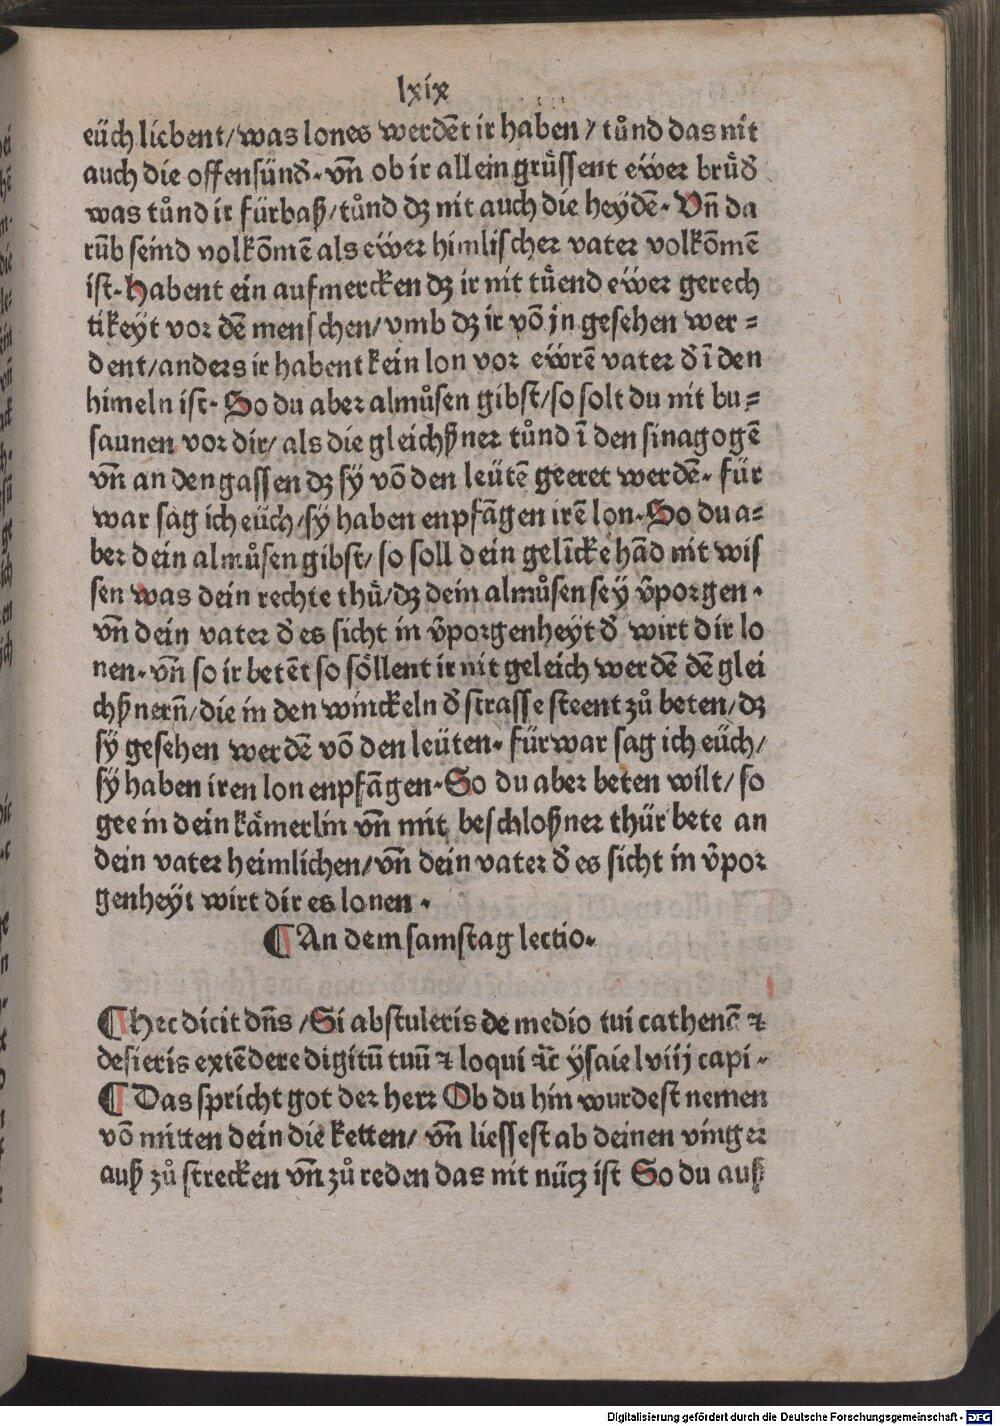 lxix
eüch liebent/was lones werdẽt ir haben/tůnd das nit
auch die offensünd̕·vñ ob ir allein grüssent ewer brüd̕
was tůnd ir fürbaß/tůnd dz nit auch die heydẽ·Vñ da
rũb seind volkõmẽ als ewer himlischer vater volkõmẽ
ist·Habent ein aufmercken dz ir nit tüend ewer gerech
tikeyt vor dẽ menschen/vmb dz ir võ jn gesehen wer=
dent/anders ir habent kein lon vor ewrẽ vater d̕ ĩ den
himeln ist·So du aber almůsen gibst/so solt du nit bu=
saunen vor dir/als die gleichßner tůnd ĩ den sinagogẽ
vñ an den gassen dz sy võ den leütẽ geeret werdẽ·für
war sag ich eüch/sy haben enpfãgen irẽ lon·So du a=
ber dein almůsen gibst/so soll dein gelĩcke hãd nit wis
sen was dein rechte thů/dz dein almůsen sey v̕porgen·
vñ dein vater d̕ es sicht in v̕porgenheyt d̕ wirt dir lo
nen·vñ so ir betẽt so söllent ir nit geleich werdẽ dẽ glei
chßnerñ/die in den winckeln d̕ strasse steent zů beten/dz
sy gesehen werdẽ võ den leüten·fürwar sag ich eüch/
sy haben iren lon enpfãgen·So du aber beten wilt/so
gee in dein kämerlin vñ mit beschloßner thür bete an
dein vater heimlichen/vñ dein vater d̕ es sicht in v̕por
genheyt wirt dir es lonen·
¶An dem samstag lectio·
¶Hec dicit dñs/Si abstuleris de medio tui cathenã ⁊
desieris extẽdere digitũ tuũ ⁊ loqui ⁊c̃ ysaie lviij capi·
¶Das spricht got der herr Ob du hin wurdest nemen
võ mitten dein die ketten/vñ liessest ab deinen vinger
auß zů strecken vñ zů reden das nit nütz ist So du auß
Digitalisierung gefördert durch die Deutsche Forschungsgemeinschaft - DFG